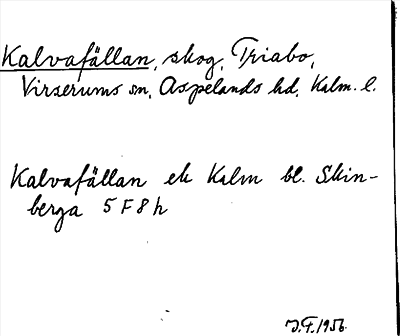 Kalvafällan, skog, Triabo,
Virserums sn, Aspelands hd, Kalm. l.
Kalvafällan ek Kalm bl. Skin-
berga 5 F 8 h
J.F. 1956